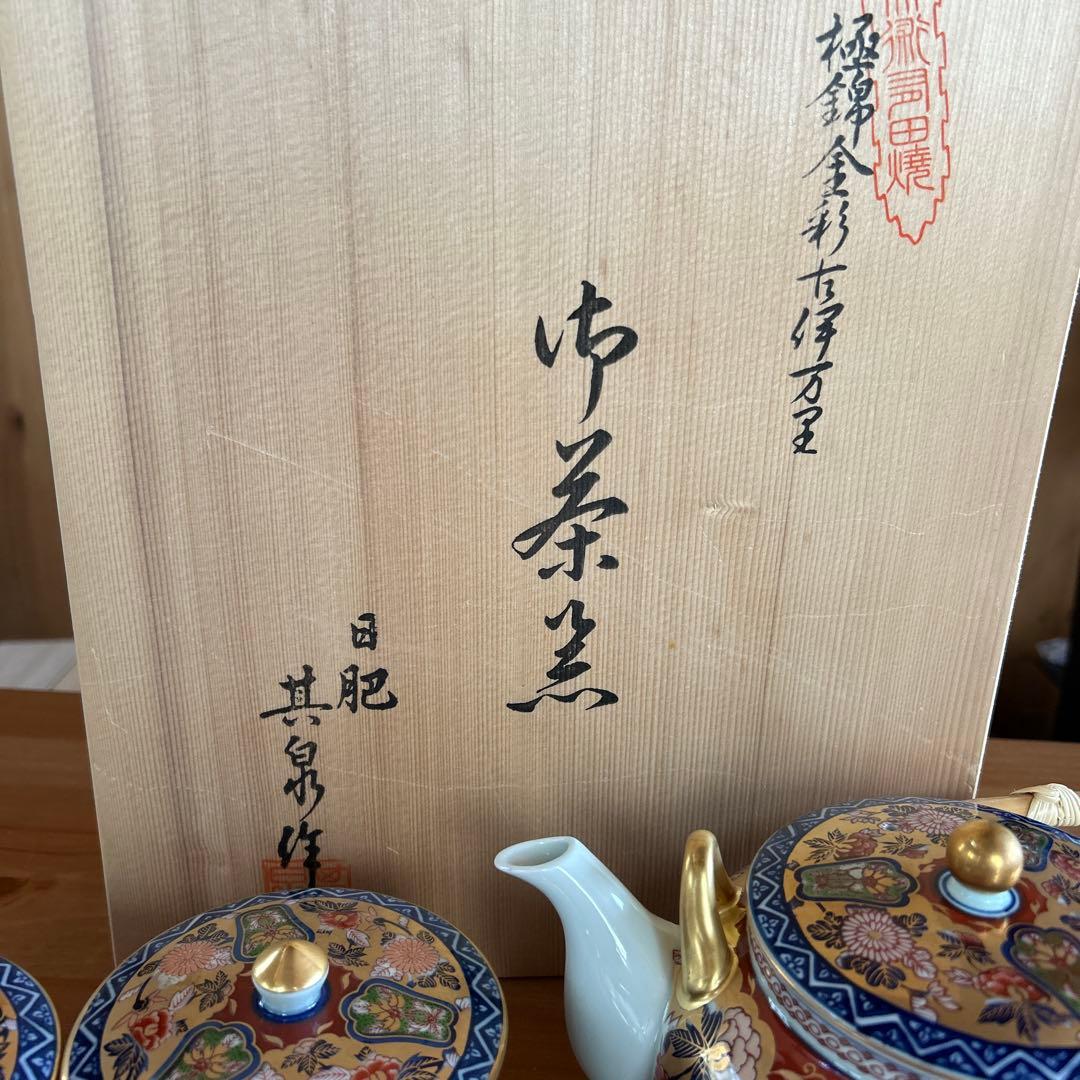 術有田焼
極錦金彩古伊万里
御茶器
日肥
其泉作